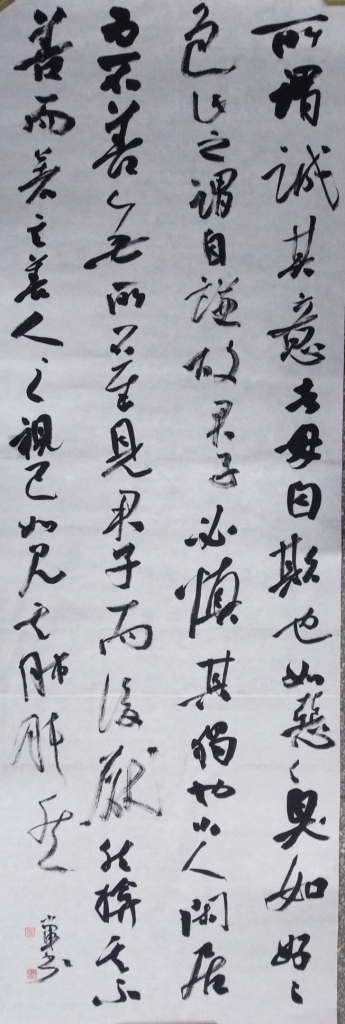 所謂誠其意者毋自欺也如惡〻臭如好〻
色此之謂自謙故君子必慎其獨也小人閑居
為不善〻無所不至見君子而後厭然揜其不
善而著其善人之視己如見其肺肝然